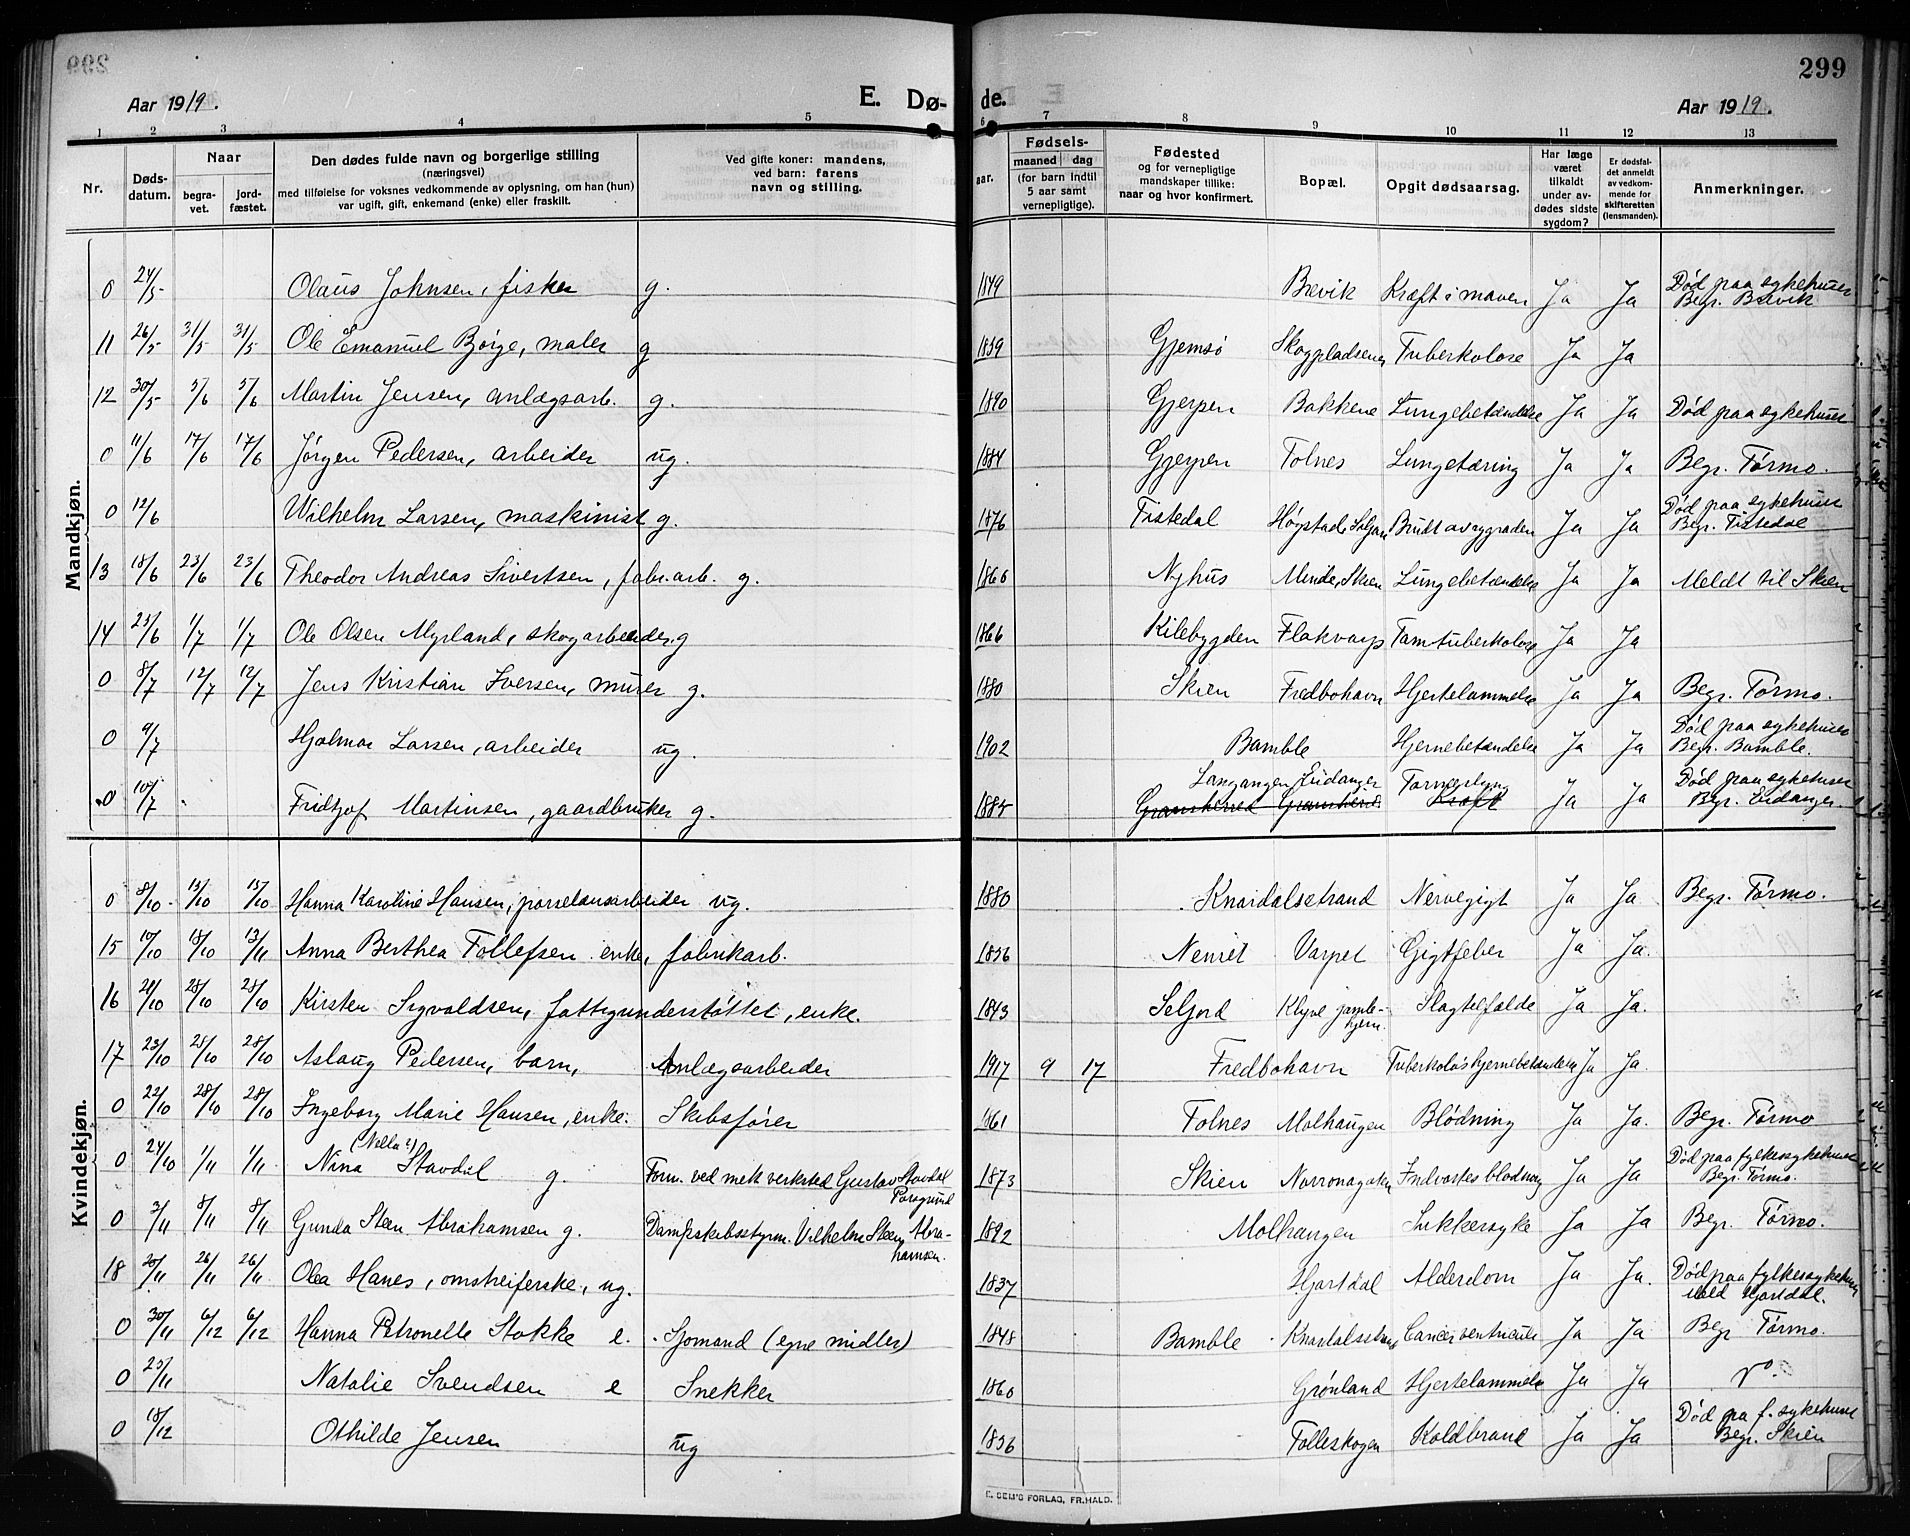 299
Aar 1919. E. Dø- de. Aar 1919.
1 2 3 4 5 6 7 8 9 10 11 12 13
Nr.
Døds-
datum.
Naar
begra-
vet.
jord-
fæstet.
Den dødes fulde navn og borgerlige stilling
(næringsvei)
med tilføielse for voksnes vedkommende av oplysning, om han (hun)
var ugift, gift, enkemand (enke) eller fraskilt.
Ved gifte koner: mandens,
ved barn: farens
navn og stilling.
aar.
Fødsels-
maaned dag
(for barn indtil
5 aar samt
vernepligtige).
Fødested
og for vernepligtige
mandskaper tillike:
naar og hvor konfirmert.
Bopæl.
Opgit dødsaarsag.
Har læge
været
tilkaldt
under av-
dødes sidste
sygdom?
Er dødsfal-
det anmeldt
av vedkom-
mende for
skifteretten
(lensmanden).
Anmerkninger.
Mandkjøn.
0 24/5 Olaus Johnsen, fisker g. 1849 Bævik Kræft i maven Ja Ja Død paa sykehuset
Begr. Bævik
11 26/5 31/5 31/5 Ole Emanuel Bjørge, maler g 1839 Gjemsø Skogpladsene Tuberkolose Ja Ja
12 30/5 5/6 5/6 Martin Jensen, anlægsarb. g. 1890 Gjerpen Bakkene Lungebetændelse Ja Ja Død paa sykehuset
0 11/6 17/6 17/6 Jørgen Pedersen, arbeider ug. 1884 Gjerpen Tolnes Lungetæring Ja Ja Begr. Tørmo.
0 12/6 Wilhelm Larsen, maskinist g. 1876 Tistedal Høgstad, Solum Brudt av ryggraden Ja Ja Død paa sykehuset
Begr. Tistedal
13 18/6 23/6 23/6 Theodor Andreas Sivertsen, fabr.arb. g. 1860 Nyhus Minde, Skien Lungebetændelse Ja Ja Meldt til Skien
14 25/6 1/7 1/7 Ole Olsen Myrland, skogarbeider, g 1866 Kilebygden Flakvarp Tarmtuberkolose Ja Ja
0 8/7 12/7 12/7 Jens Kristian Iversen, murer g. 1880 Skien Fredbohavn Hjertelammelse Ja Ja Begr. Tørmo.
0 9/7 Hjalmar Larsen, arbeider ug. 1902 Bamble Hjernebetændelse Ja Ja Død paa sykehuset
Begr. Bamble.
Langangen Eidanger Død paa sykehuset
0 10/7 Fridtjof Martinsen, gaardbruker g. 1885 Gransherred Gransherred Kræft Ja Ja Begr. Eidanger.
Kvindekjøn.
0 8/10 13/10 13/10 Hanna Karoline Hansen, porselænsarbeider ug. 1880 Knardalsstrand Nervegigt Ja Ja Begr. Tørmo.
15 10/10 18/10 13/11 Anna Berthea Tollefsen enke, fabrikarb. 1856 Nenset Varpet Gigtfeber Ja Ja.
16 21/10 28/10 28/10 Kirsten Sigvaldsen, fattigunderstøttet, enke. 1843 Seljord Klyve gamle-
hjem. Slagtilfælde Ja Ja.
17 23/10 28/10 28/10 Aslaug Pedersen, barn, Anlægsarbeider 1917 9 17 Fredbohavn Tuberkoløs hjernebetændelse Ja Ja.
0 22/10 28/10 28/10 Ingeborg Marie Hansen, enke. Skibsfører 1861 Tolnes Molhaugen Blødning Ja Ja. Begr. Tørmo
(Nella?)
0 24/10 1/11 1/11 Nina Stavdal g. Form. ved mek verksted Gustav Stavdal
Porsgrund 1873 Skien Norrønagaten Indvortes blødning Ja Ja Død paa fylkessykehuset
Begr. Tørmo.
0 3/11 8/11 8/11 Gunda Steen Abrahamsen g. Dampskibsstyrm. Vilhelm Steen Abra-
hamsen. 1892 Molhaugen Sukkersyke Ja Ja Begr. Tørmo.
18 20/11 26/11 26/11 Olea Hanes, omstreiferske, ug. 1837 Hjartdal Alderdom Ja Ja. Død paa fylkessykehus
Hjartdal.
0 30/11 6/12 6/12 Hanna Petronelle Stokke e. Sjømand (egne midler) 1848 Bamble Knardalsstrand Cancer ventriculi Ja Ja Begr Tørmo.
0 25/11 Natalie Svendsen e Snekker 1860 Grønland Hjertelammelse Ja Ja
0 18/12 Othilde Jensen ug 1856 Folleskogen Koldbrand Ja Ja Død paa f. sykehuset
Begr. Skien
E. SEM'S FORLAG, FR.HALD.